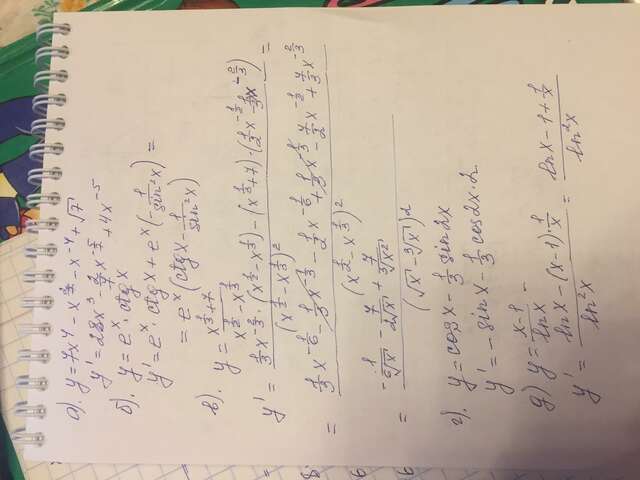 а). y = 7x⁴ - x^(2/7) - x⁻⁴ + √7
y' = 28x³ - 2/7 x^(-5/7) + 4x⁻⁵
б). y = eˣ · ctg x
y' = eˣ · ctg x + eˣ(-1/sin²x) =
= eˣ(ctg x - 1/sin²x)
в). y = (x^(1/3) + 7)/(x^(1/2) - x^(1/3))
y' = (1/3 x^(-2/3) · (x^(1/2) - x^(1/3)) - (x^(1/3) + 7) · (1/2 x^(-1/2) - 1/3 x^(-2/3)))/(x^(1/2) - x^(1/3))² =
= (1/3 x^(-1/6) - 1/3 x^(-1/3) - 1/2 x^(-1/6) + 1/3 x^(-1/3) - 7/2 x^(-1/2) + 7/3 x^(-2/3))/(x^(1/2) - x^(1/3))²
= (-1/(6 ⁶√x) - 7/(2√x) + 7/(3 ³√x²))/(√x - ³√x)²
г). y = cos x - 1/3 sin 2x
y' = -sin x - 1/3 cos 2x · 2
д) y = (x-1)/ln x
y' = (ln x - (x-1) · 1/x)/ln²x = (ln x - 1 + 1/x)/ln²x